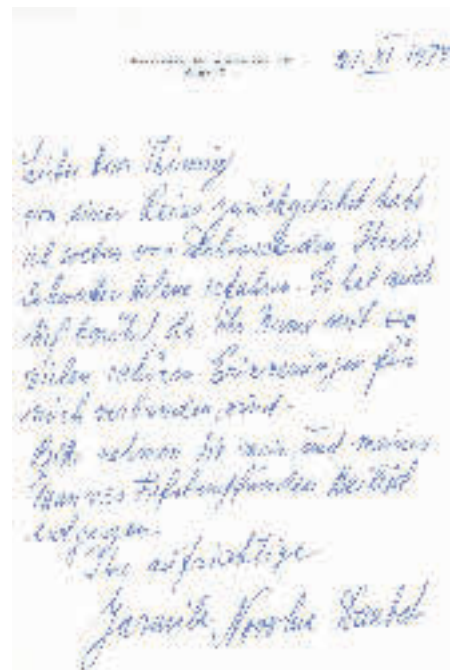 21. XI 1974
Lieber Herr Thimig
von einer Reise zurückgekehrt habe
ich soeben vom Ableben Ihrer
Schwester Helene erfahren. Es hat mich
tief berührt, da Ihr Name mit
vielen schönen Erinnerungen für
mich verbunden
Bitte nehmen Sie mein und meines
Mannes tiefempfundenes Beileid
entgegen.
Ihre aufrichtige
Jarmila Novotna Daubek